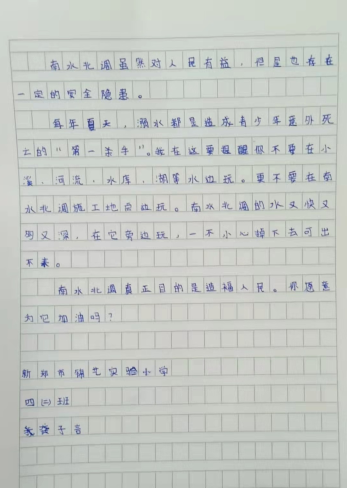 南水北调虽然对人民有益，但是也存在
一定的安全隐患。
每年夏天，溺水都是造成青少年意外死
亡的“第一杀手”。我在这要提醒你不要在小
溪，河流，水库，湖等水边玩。更不要在南
水北调施工地旁边玩。南水北调的水又快又
又深，在它旁边玩，一不小心掉下去可出
不来。
南水北调真正目的是造福人民。你愿意
为它加油吗？
新郑市 实验小学
四（六）班